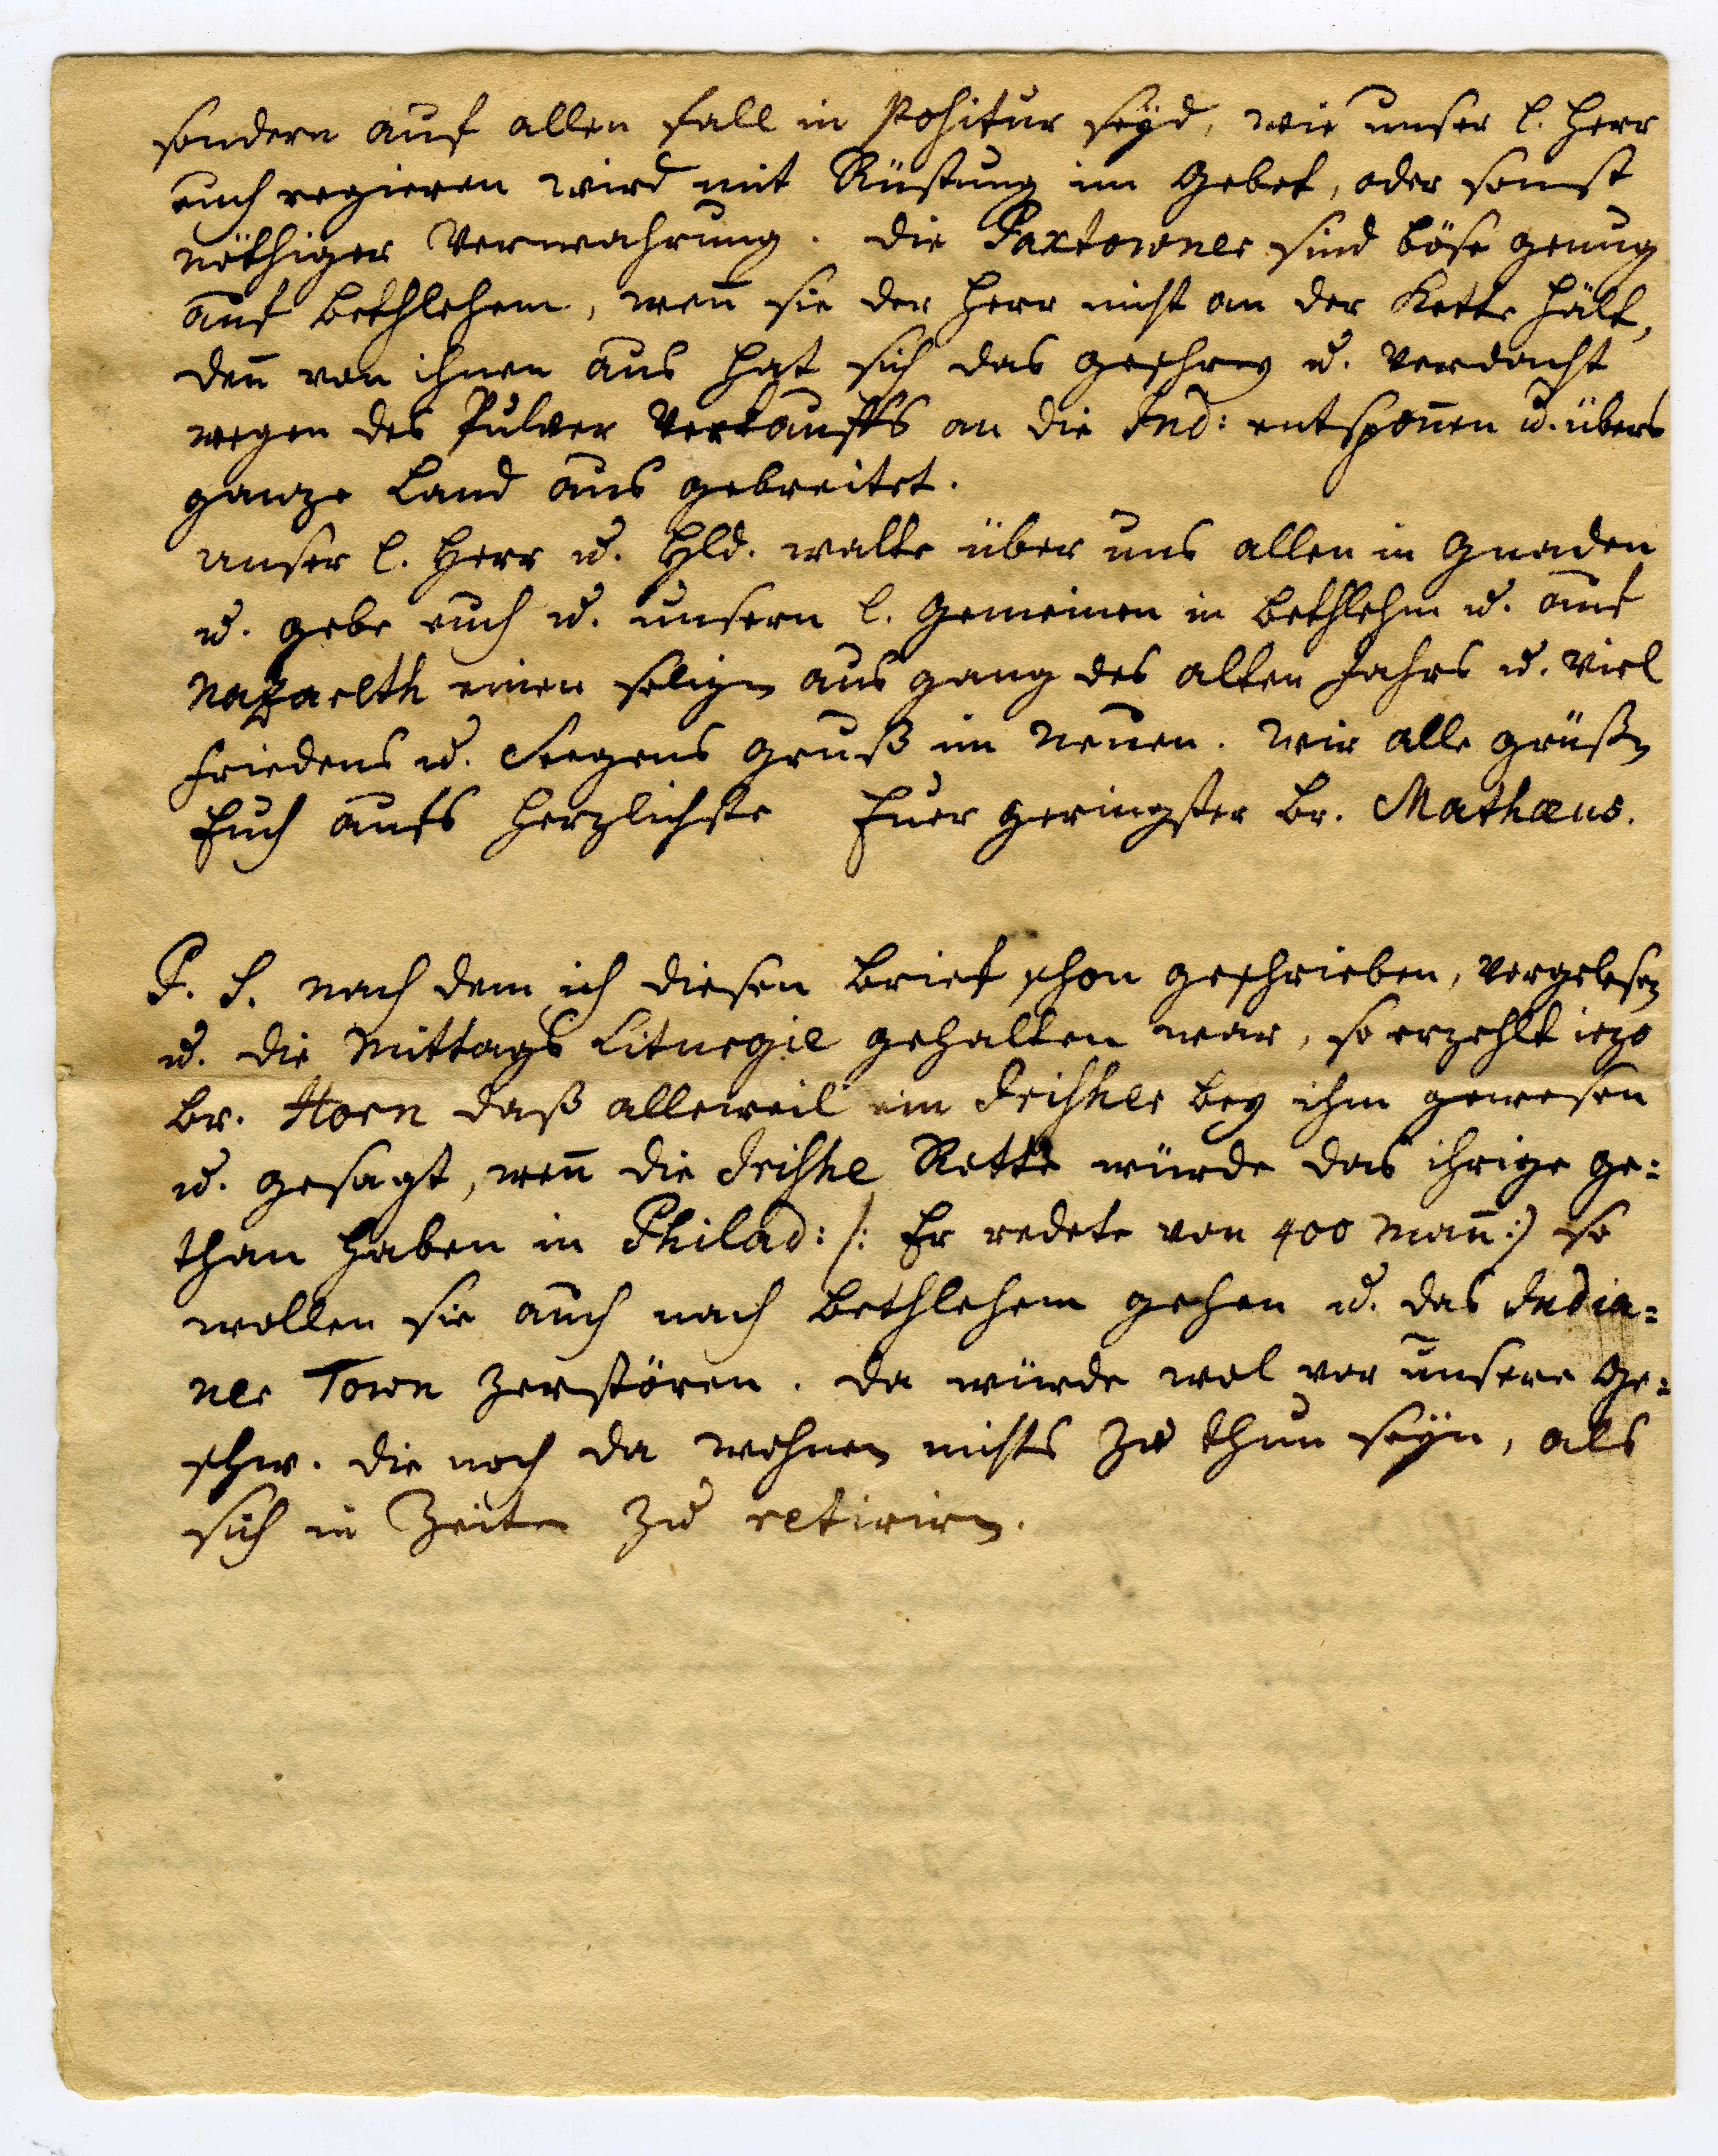 sondern auf allen fall in Positur seyd, wie unser l. Herr
euch regieren wird mit Rüstung im Gebet, oder sonst
nöthiger Verwahrung. die Paxtowner sind böse genug
auf Bethlehem, weñ sie der Herr nicht an der Kette hält,
deñ von ihnen aus hat sich das geschrey u. Verdacht
wegen des Pulver Verkauffs an die Ind: entspoñen u. übers
ganze Land aus gebreitet.
Unser l. Herr u. Hld. walte über uns allen in Gnaden
u. gebe euch u. unsern l. Gemeinen in Bethlehm u. auf
Nazareth einen seligen aus gang des alten Jahrs u. viel
Friedens u. Seegens Gruß im Neuen. Wir alle grüßen
Euch aufs herzlichste Euer geringster Br. Mathæus.
P. S. Nach dem ich diesen Brief schon geschrieben, vorgelesen
u. die Mittags Liturgie gehalten war, so erzehlt iezo
Br. Horn daß alleweil ein Irisher bey ihm gewesen
u. gesagt, weñ die Irishe Rotte würde das ihrige ge=
than haben in Philad: /: Er redete von 400 Mañ :/ so
wollen sie auch nach Bethlehem gehen u. das India=
ner Town zerstören. da würde wol vor unsere Ge=
schw. die noch da wohnen nichts zu thun seyn, als
sich in Zeiten zu retiriren.